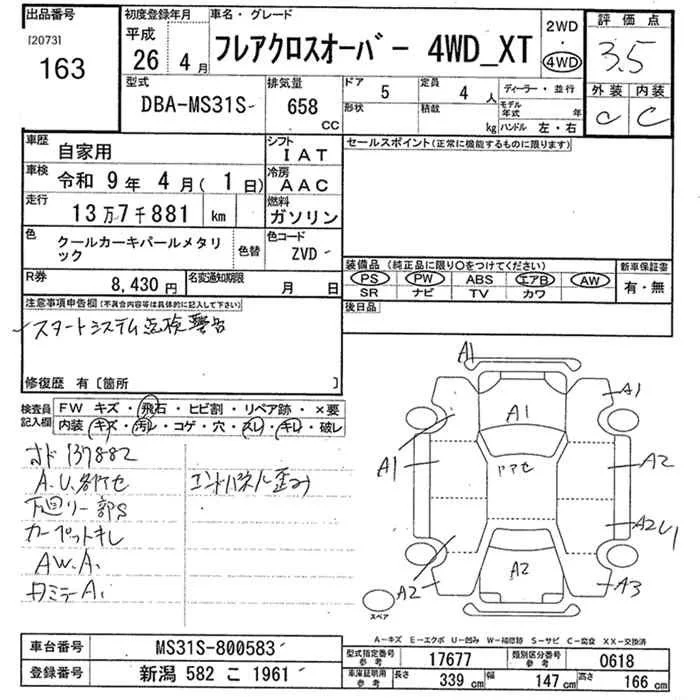 出品番号
[2073]
163
初度登録年月
平成
26 4月
車名・グレード
フレアクロスオーバー 4WD_XT
2WD
・
4WD
評価点
3.5
外装 内装
C C
型式
DBA-MS31S
排気量
658
CC
ドア
5
定員
4 人
ディーラー・並行
形状
積載
kg
モデル年式 年
ハンドル 左・右
車歴
自家用
シフト
IAT
セールスポイント(正常に機能するものに限ります)
車検
令和 9年 4月( 1日)
冷房
AAC
走行
13万7千881 km
燃料
ガソリン
色
クールカーキパールメタリック
色替
色コード
ZVD
装備品 (純正品に限り○をつけてください)
PS PW ABS エアB AW
SR ナビ TV カワ
新車保証書
有・無
R券
8,430円
名変通知期限
月 日
後日品
注意事項申告欄(不具合内容等は具体的に記入して下さい)
スタートシステム点検警告
修復歴 有〔箇所 〕
検査員記入欄
FW キズ・飛石・ヒビ割・リペア跡・×要
内装・キズ・汚レ・コゲ・穴・スレ・キレ・破レ
オド 137882
A.U.各所セ
エンドパネル歪み
下廻り一部S
カーペットキレ
AW.A.
A1
A1
A1
A1
ドアセ
A2
A2
A2
A3
スペア
A-キズ E-エクボ U-凹み W-補修跡 S-サビ C-腐食 XX-交換済
車台番号
MS31S-800583
登録番号
新潟 582 こ 1961
型式指定番号 参考
17677
類別区分番号 参考
0618
車庫証明用 参考
長さ 339 cm
幅 147 cm
高さ 166 cm